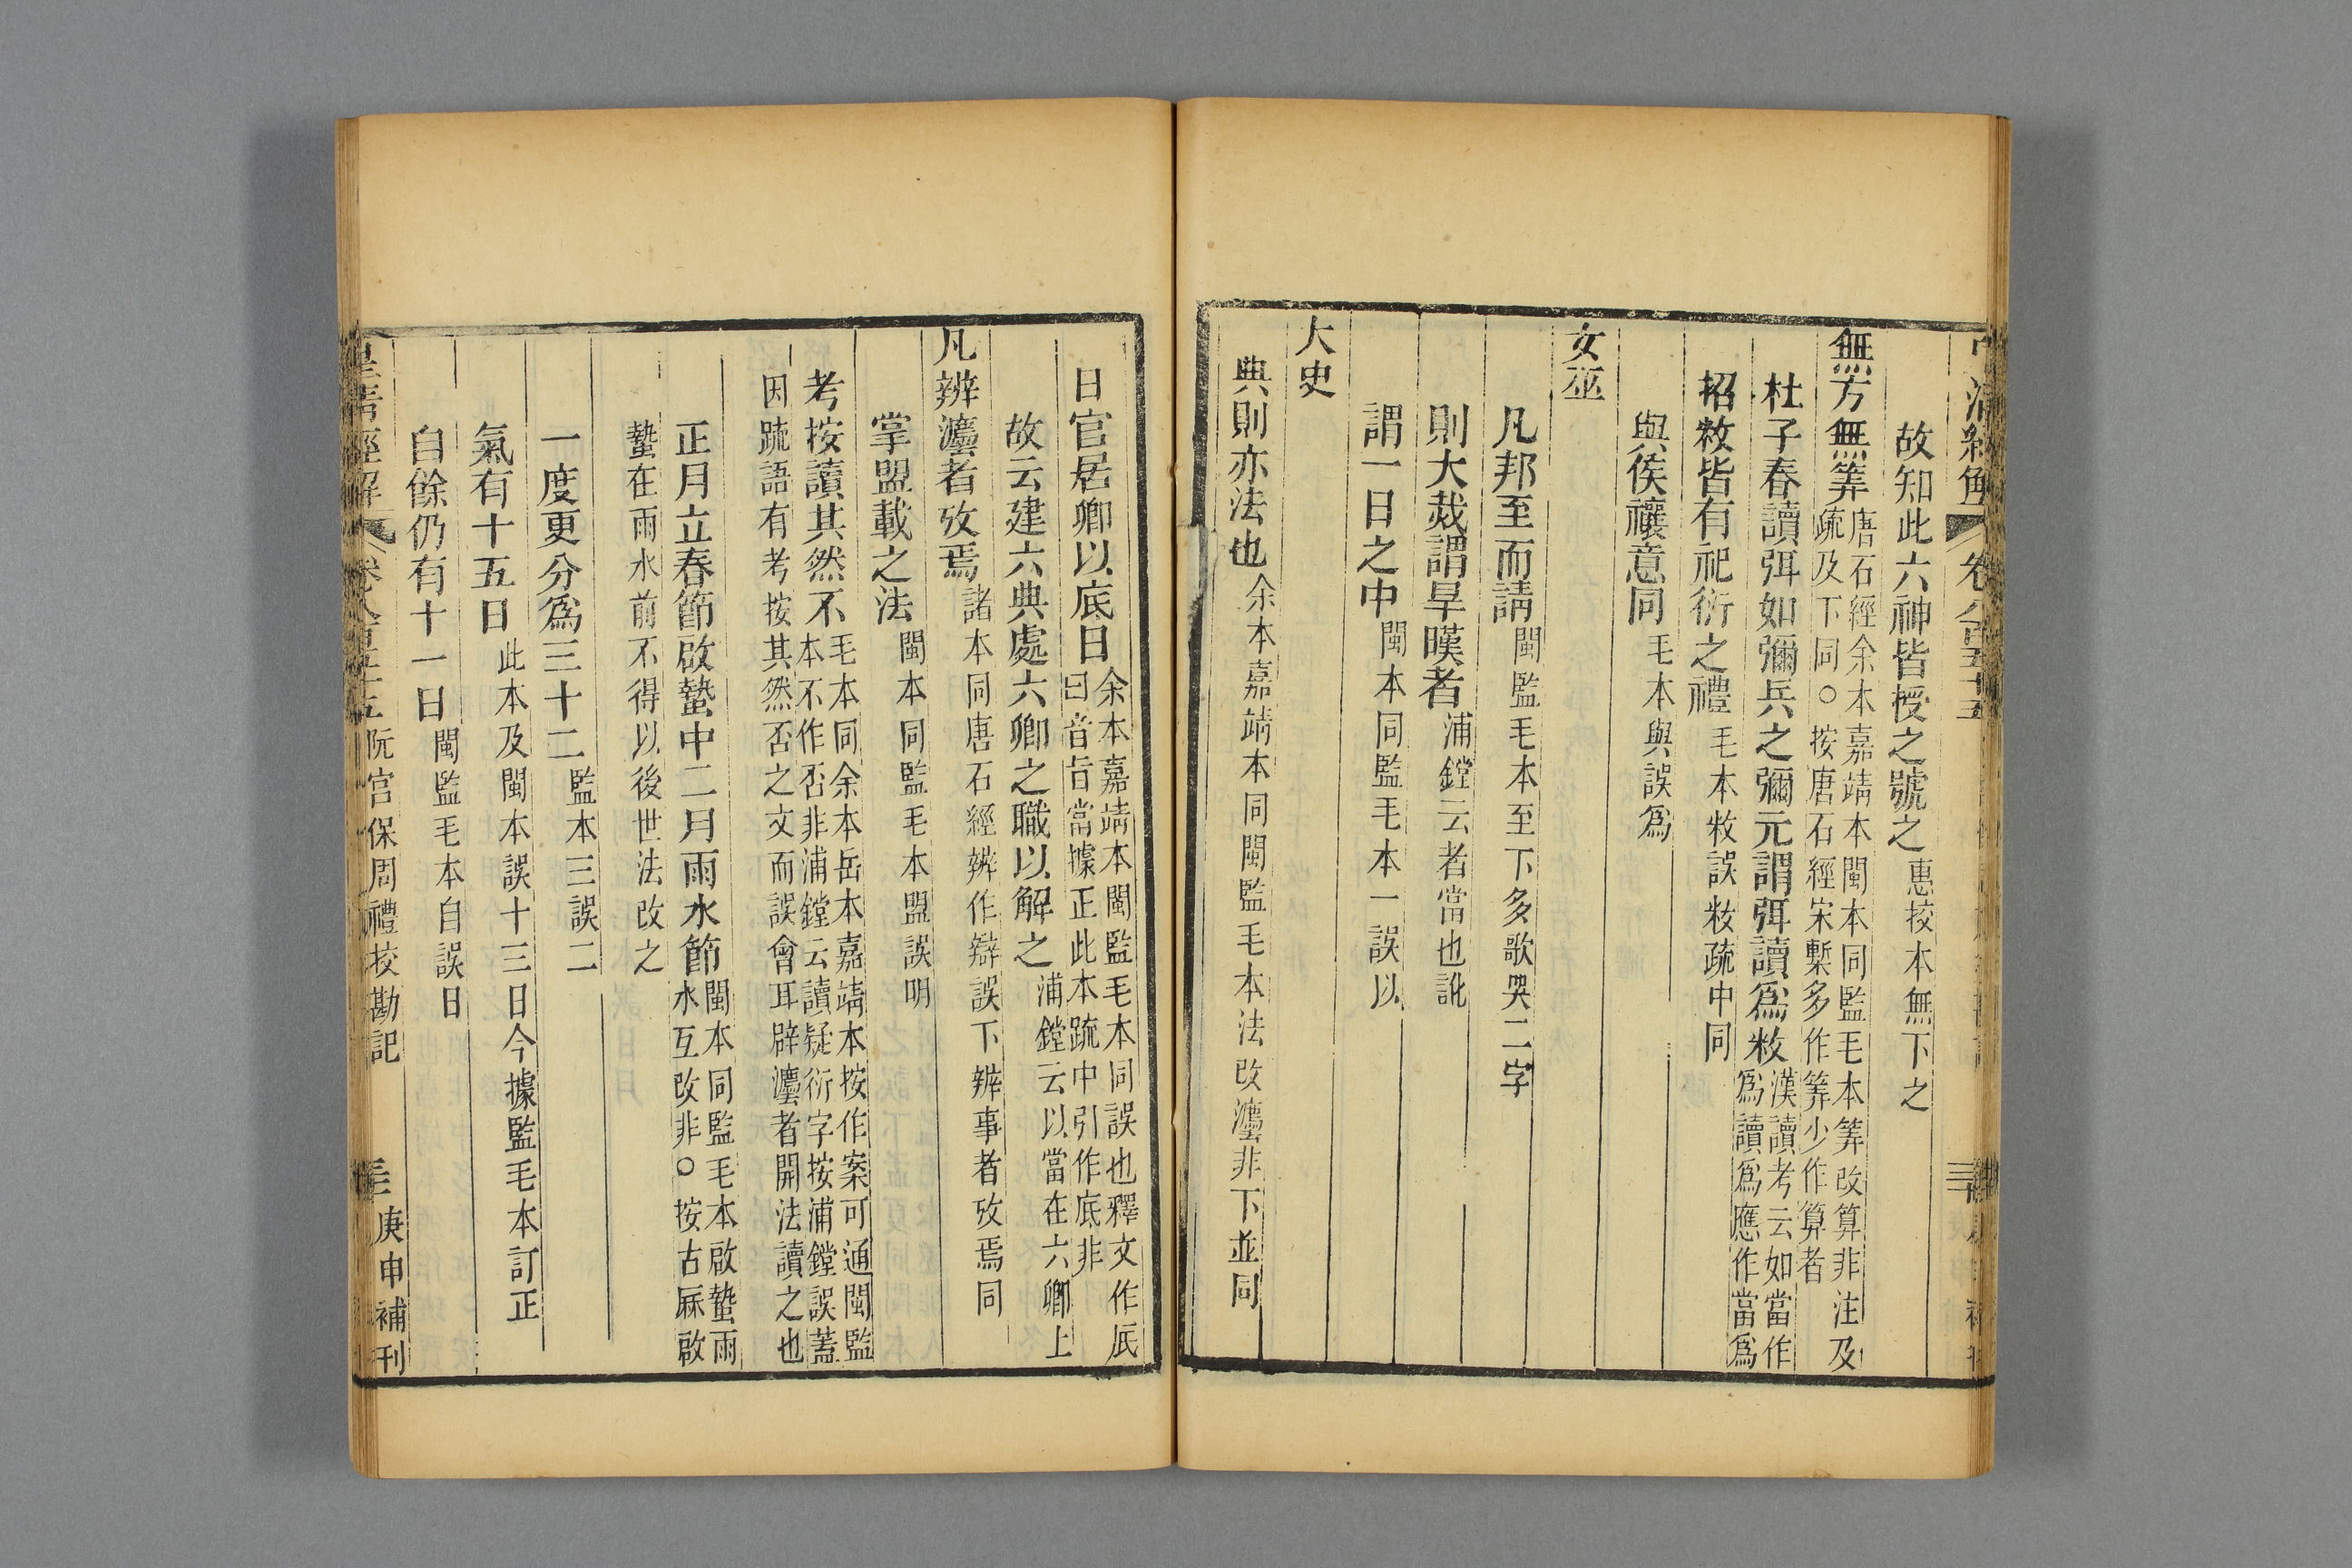 故知此六神皆授之號之惠挍本無下之
無方無筭唐石經余本嘉靖本閩本同監毛本筭改算非注及
疏及下同○按唐石經宋槧多作筭少作算者
杜子春讀弭如彌兵之彌元謂弭讀爲敉漢讀考云如當作
爲讀爲應作當爲
招敉皆有祀衍之禮毛本敉誤敉疏中同
與侯禳意同毛本與誤爲
女巫
凡邦至而請閩監毛本至下多歌哭二字
則大烖謂旱暵者浦鏜云者當也訛
謂一日之中閩本同監毛本一誤以
大史
典則亦法也余本嘉靖本同閩監毛本法改灋非下並同
日官居卿以底日余本嘉靖本閩監毛本同誤也釋文作厎
曰音旨當據正此本疏中引作底非
故云建六典處六卿之職以解之浦鏜云以當在六卿上
凡辨灋者攷焉諸本同唐石經辨作辯誤下辨事者攷焉同
掌盟載之法閩本同監毛本盟誤明
考按讀其然不毛本同余本岳本嘉靖本按作案可通閩監
本不作否非浦鏜云讀疑衍字按浦鏜誤蓋
因疏語有考按其然否之文而誤會耳辟灋者開法讀之也
正月立春節啟蟄中二月雨水節閩本同監毛本啟蟄雨
水互改非○按古厤啟
蟄在雨水前不得以後世法改之
一度更分爲三十二監本三誤二
氣有十五日此本及閩本誤十三日今據監毛本訂正
自餘仍有十一日閩監毛本自誤日
皇清經解 卷八百五十五 阮宮保周禮挍勘記 庚申補刊